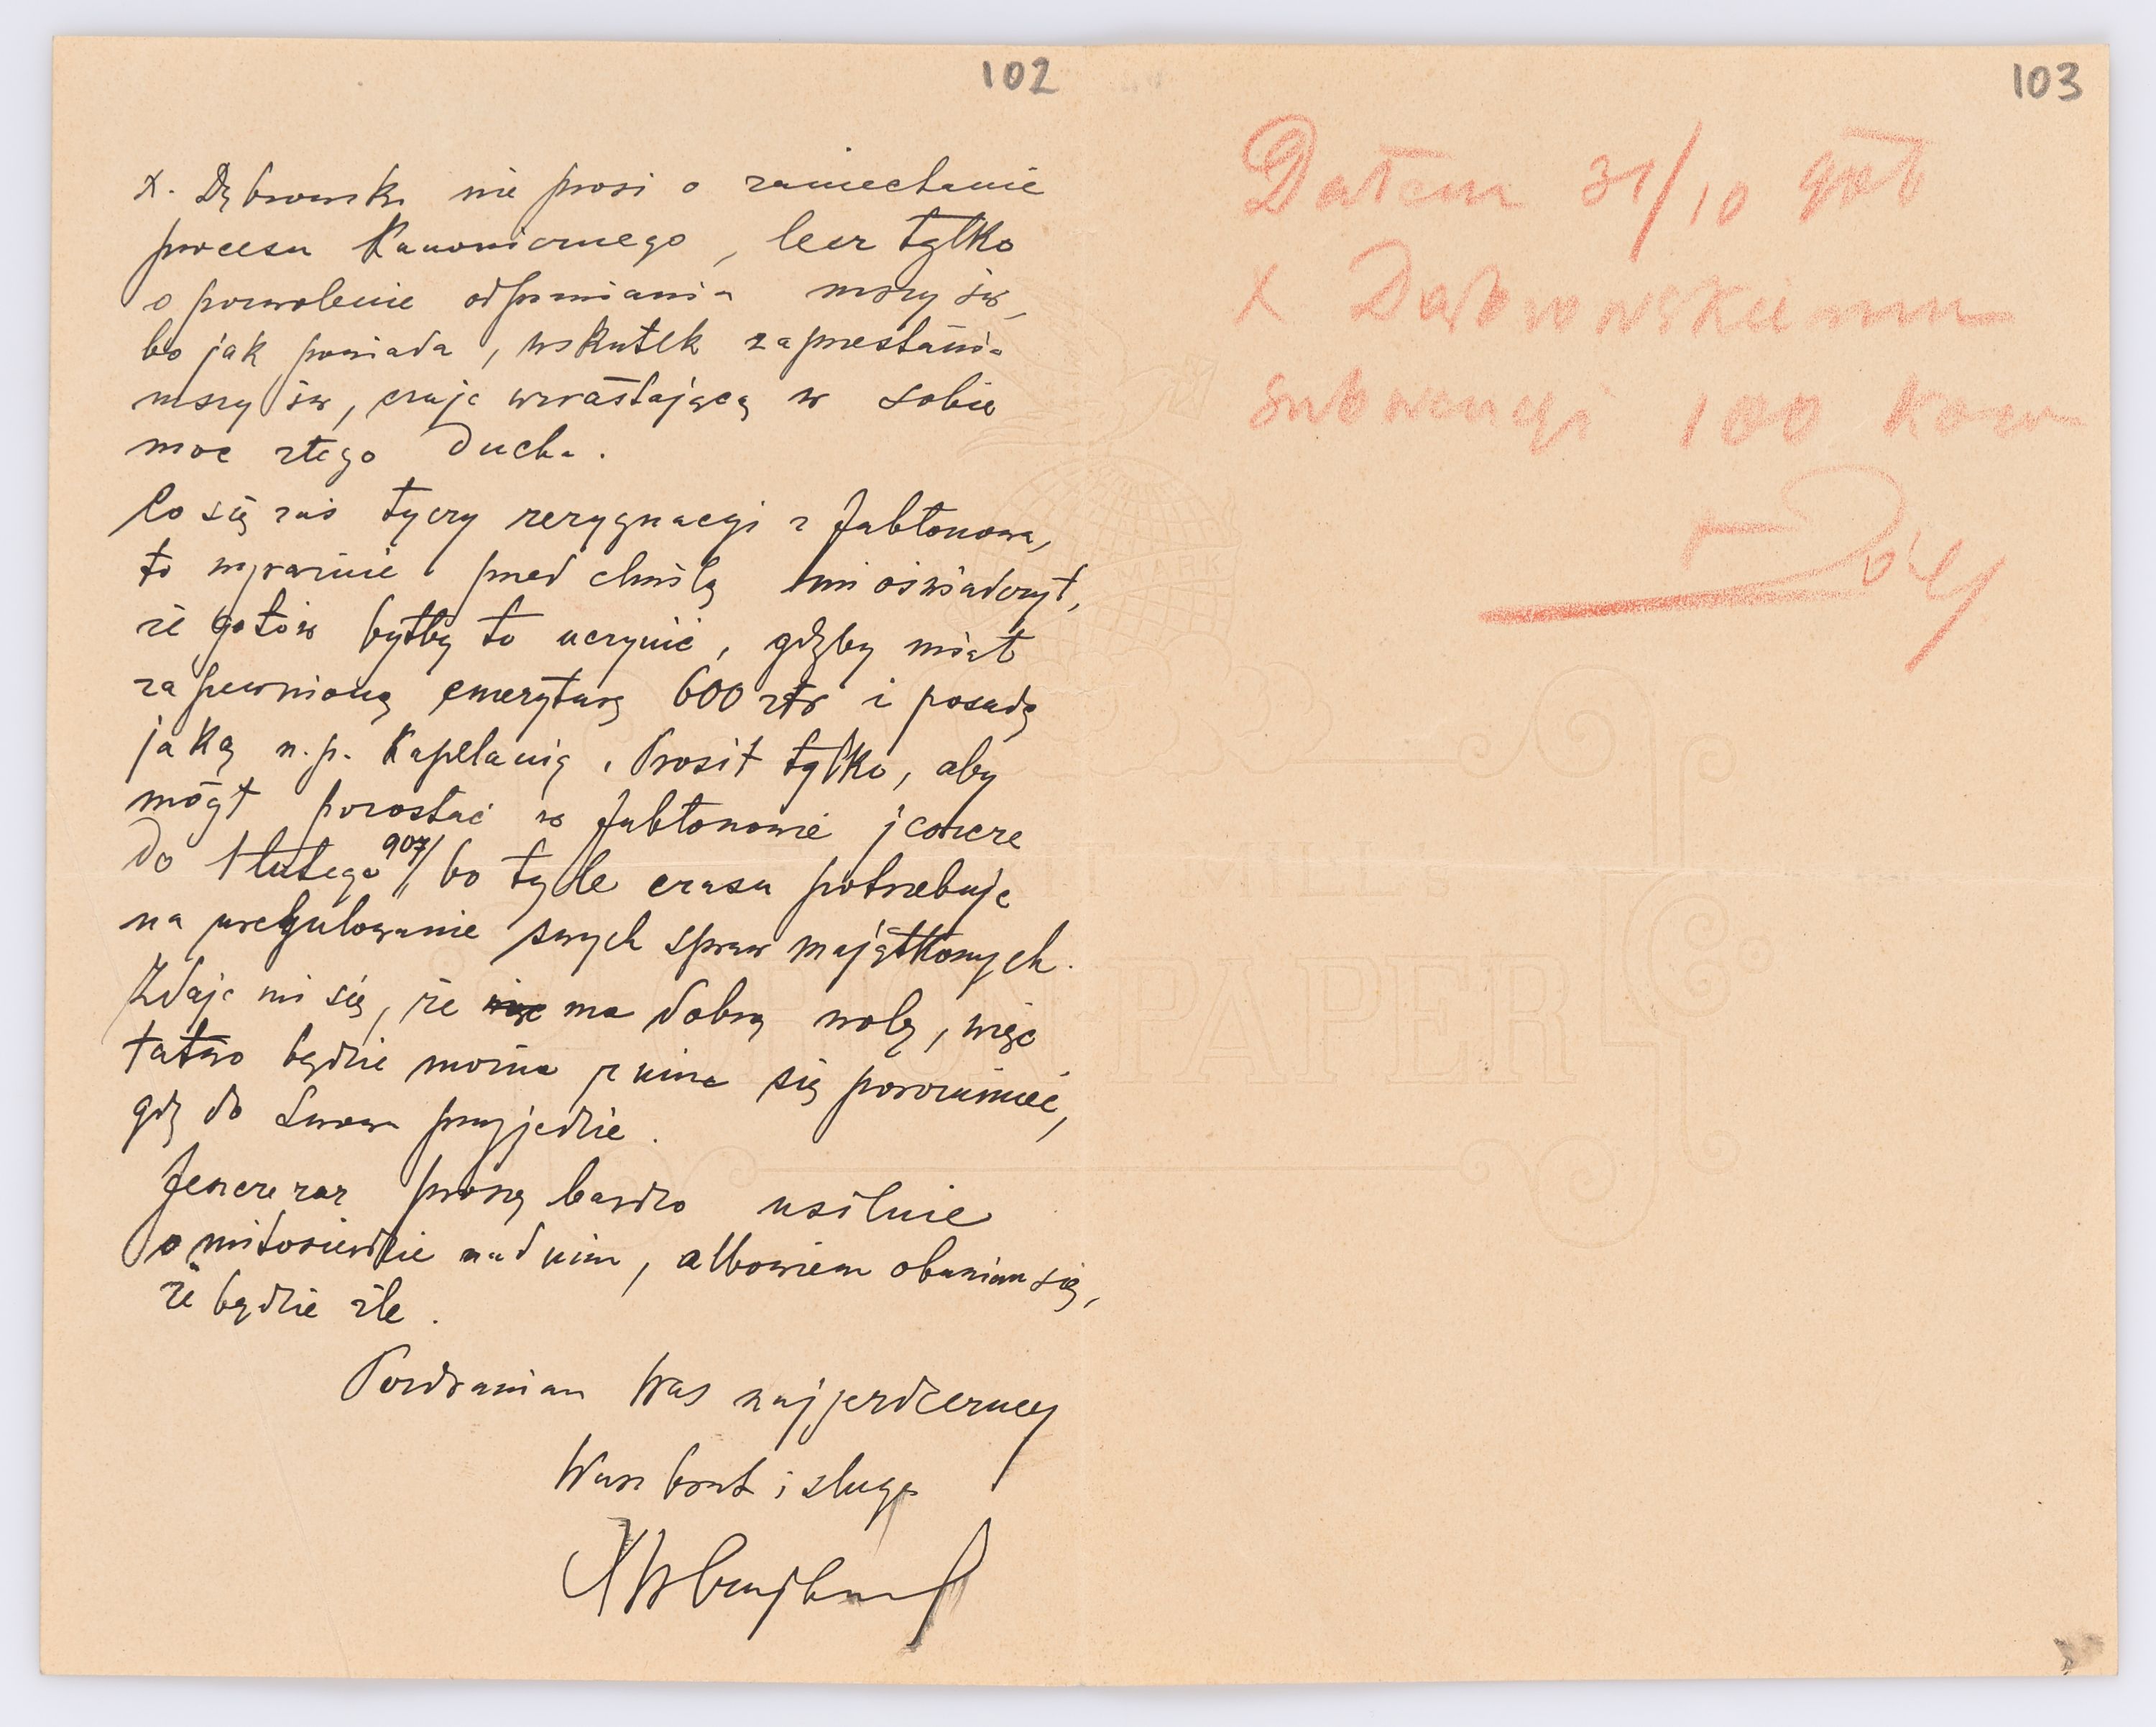 102
X. Dąbrowski nie prosi o zaniechanie
procesu Kanonicznego, lecz tylko
o pozwolenie odprawiania mszy św,
bo jak powiada, wskutek zaprzestania
mszy św, czuje wzrastającą w sobie
moc złego ducha.
Co się zaś tyczy rezygnacyi z Jabłonowa,
to wyraźnie przed chwilą mi oświadczył,
że gotów byłby to uczynić, gdyby miał
zapewnioną emeryturę 600 złr i posadę
jaką n.p. Kapelanię. Prosił tylko, aby
mógł pozostać w Jabłonowie jeszcze
do 1 lutego 907/ bo tyle czasu potrzebuje
na uregulowanie swych spraw majątkowych.
Zdaje mi się, że ma dobrą wolę, więc
łatwo będzie można z nim się porozumieć,
gdy do Lwowa przyjedzie.
Jeszcze raz proszę bardzo usilnie
o miłosierdzie nad nim, albowiem obawiam się,
że będzie źle.
Pozdrawiam Was najserdeczniej
Wasz brat i sługa
103
Dałem 31/10 906
X Dąbrowskiemu
subwencyi 100 Kor
MARK
PAPER